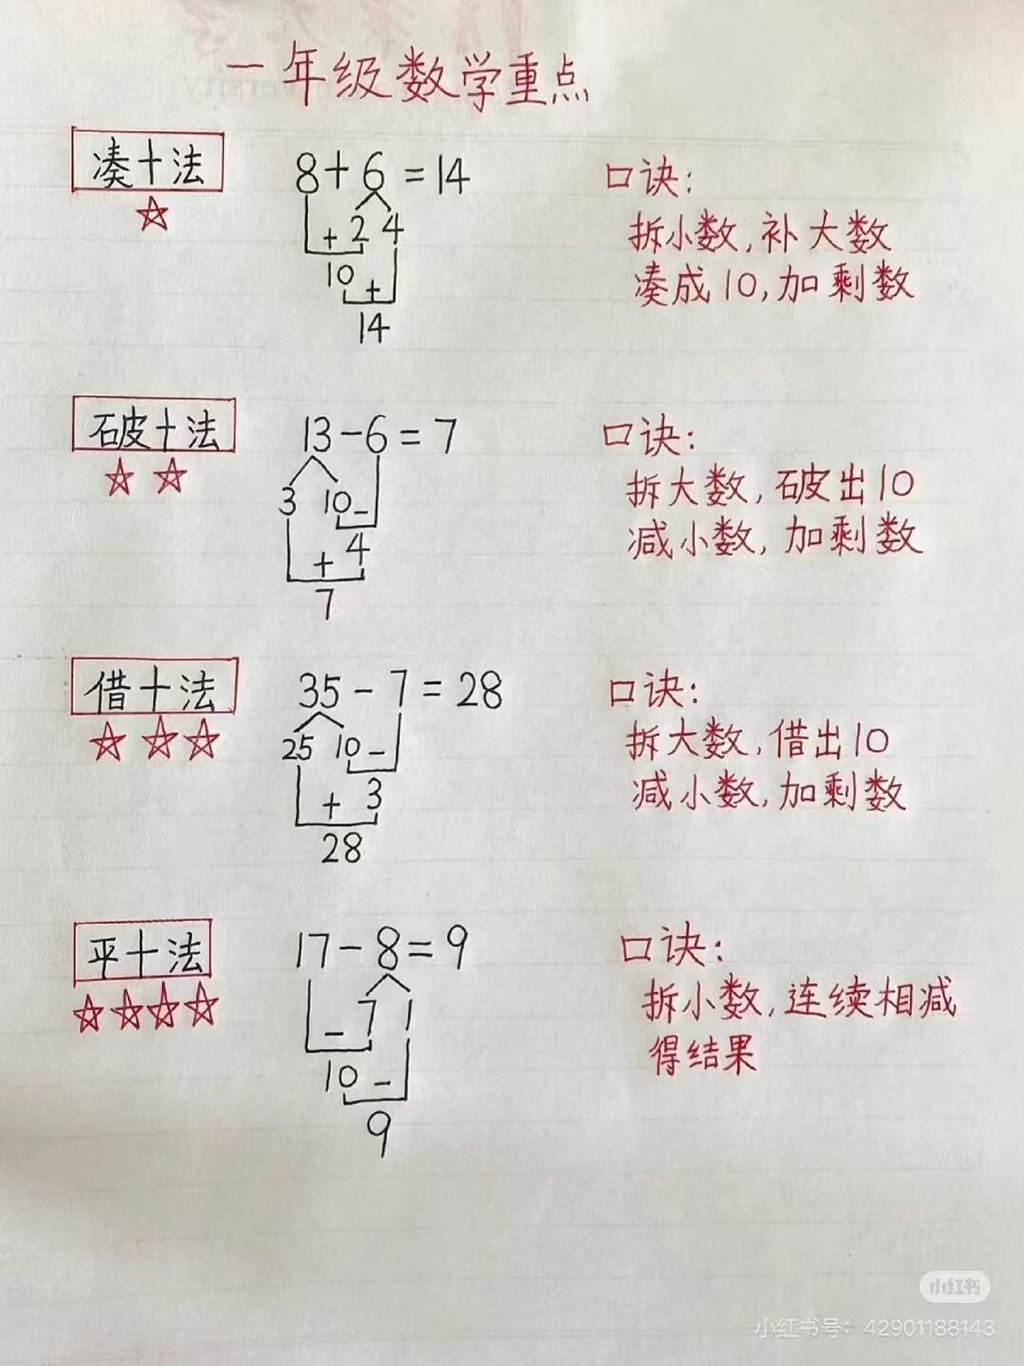 一年级数学重点
凑十法
8+6=14
+ 2 4
10 +
14
口诀:
拆小数,补大数
凑成10,加剩数
破十法
13-6=7
3 10-
+ 4
7
口诀:
拆大数,破出10
减小数,加剩数
借十法
35-7=28
25 10-
+ 3
28
口诀:
拆大数,借出10
减小数,加剩数
平十法
17-8=9
- 7 1
10 -
9
口诀:
拆小数,连续相减
得结果
小红书
小红书号：42901188143